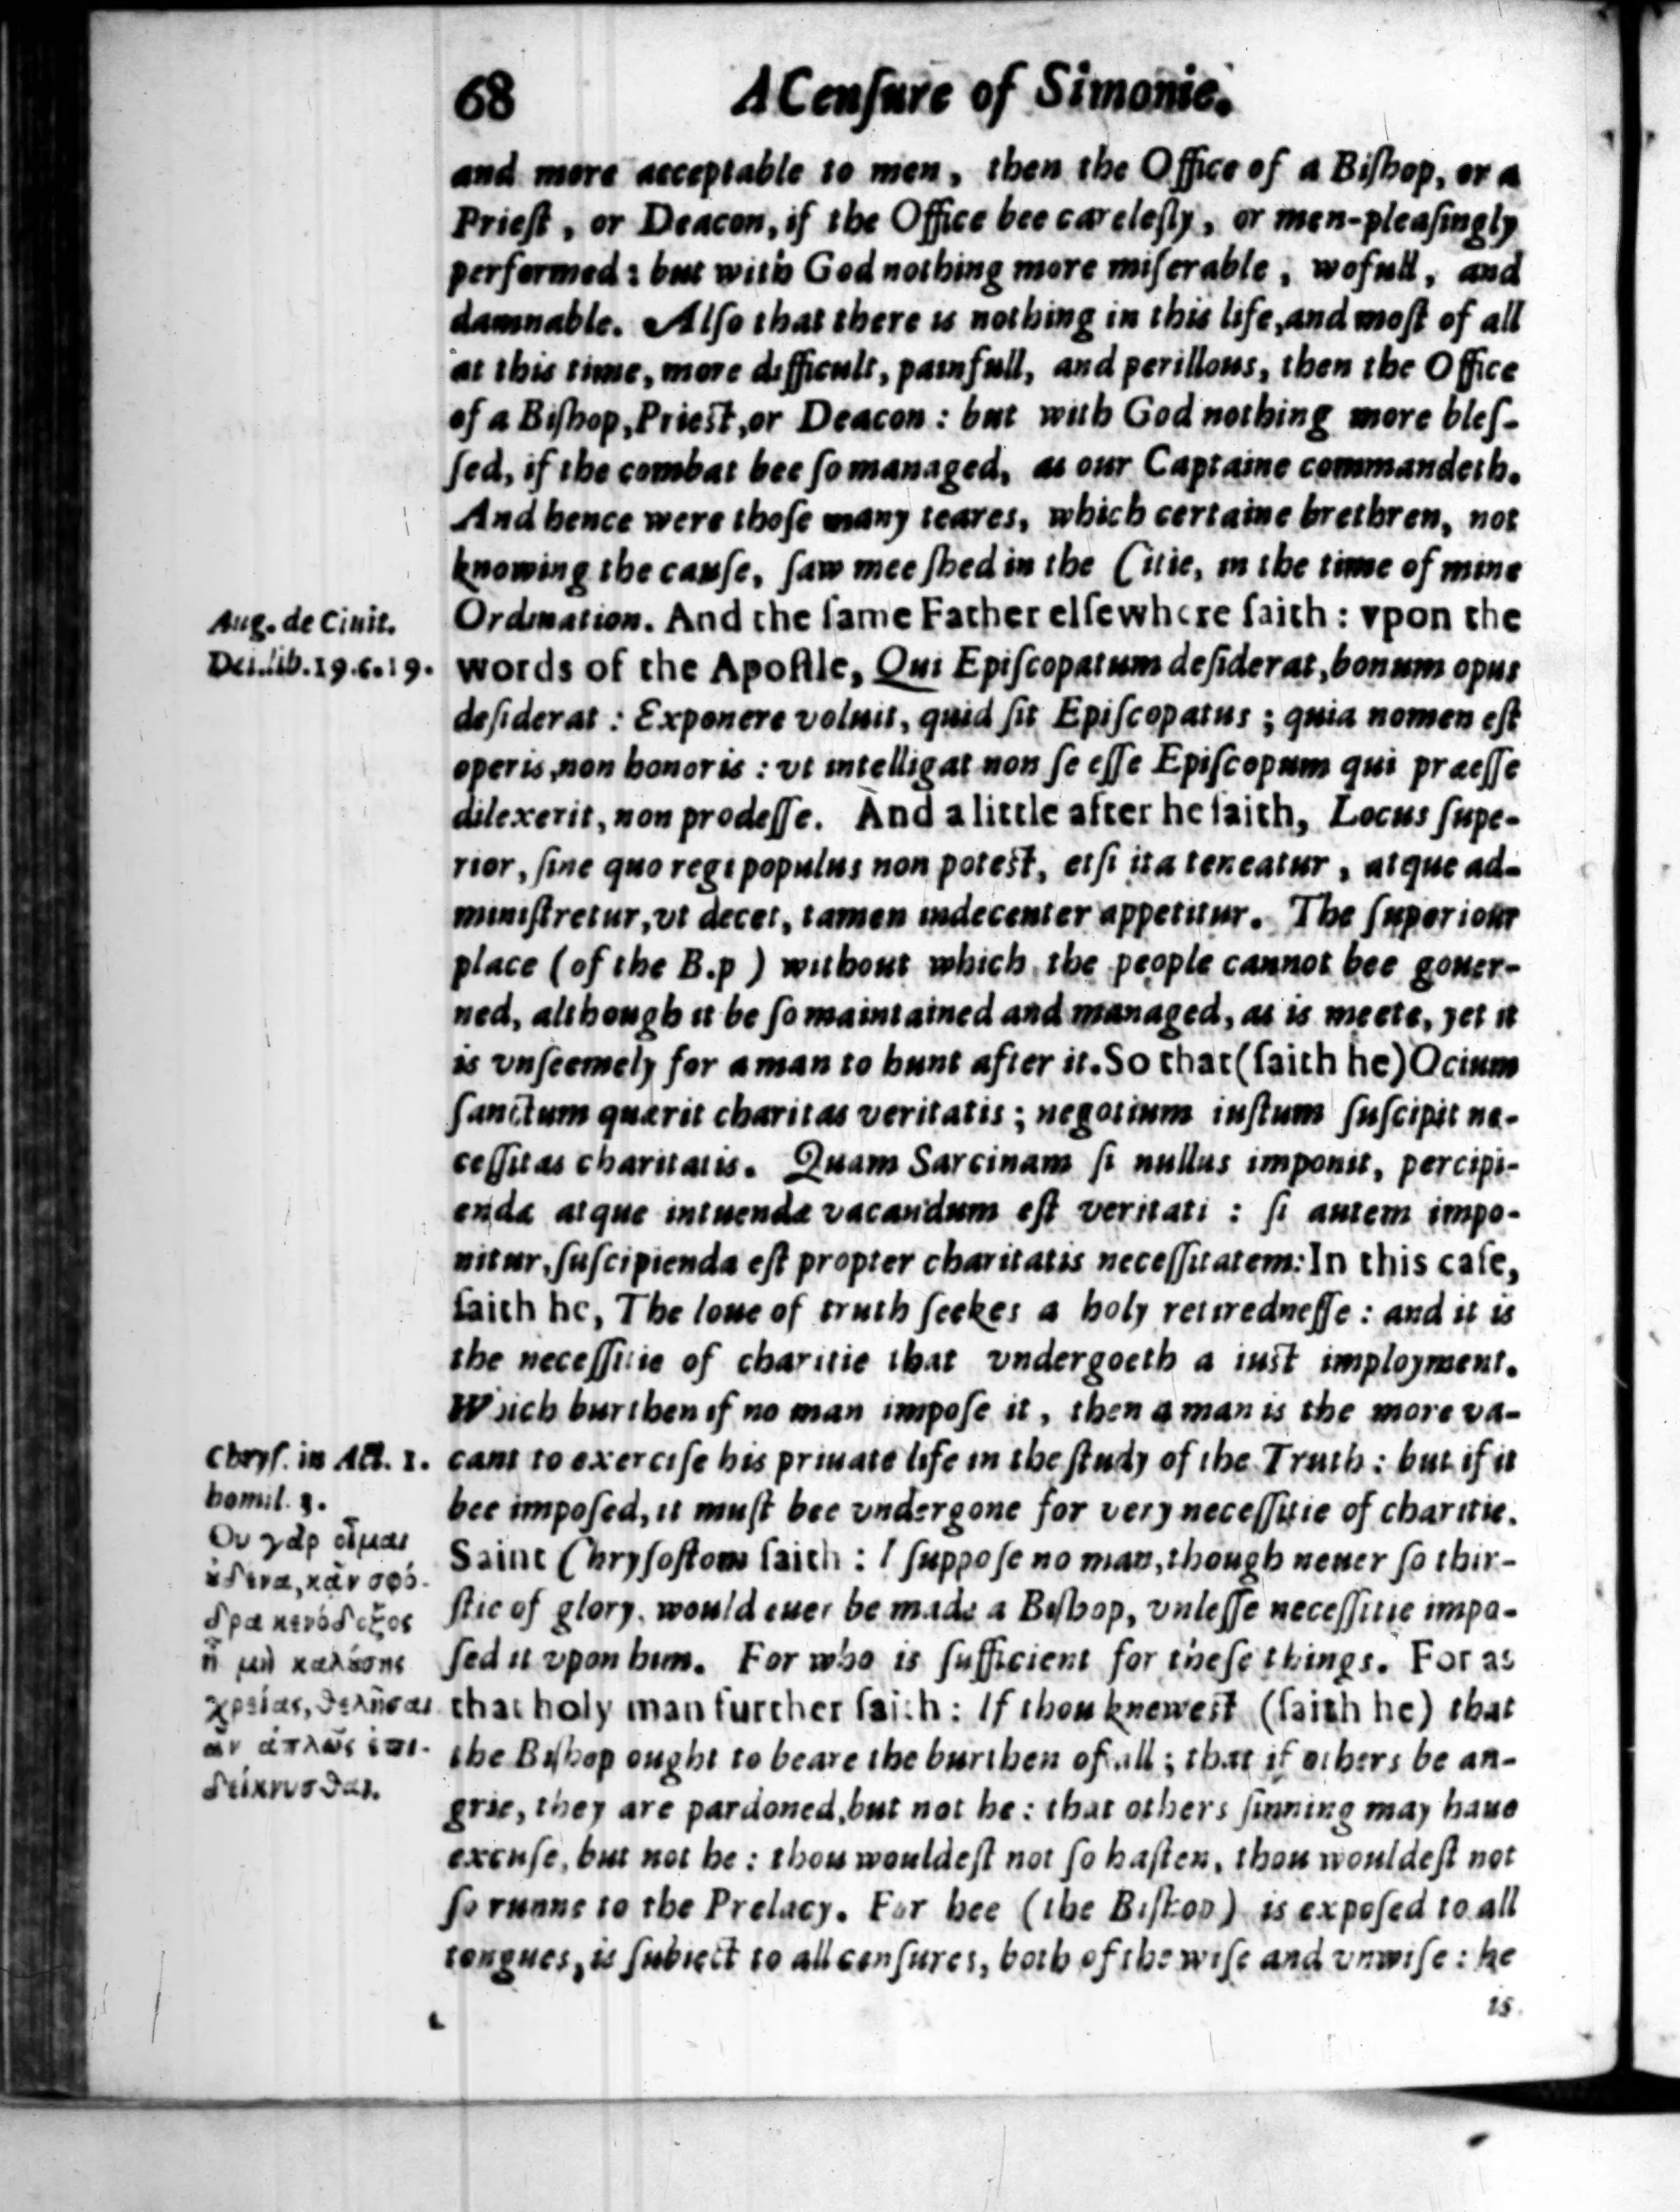 68 A Cenſure of Simonie.
and more acceptable to men, then the Office of a Biſhop, or a
Prieſt, or Deacon, if the Office bee careleſly, or men-pleaſingly
performed: but with God nothing more miſerable, wofull, and
damnable. Alſo that there is nothing in this life, and moſt of all
at this time, more difficult, painfull, and perillous, then the Office
of a Biſhop, Prieſt, or Deacon: but with God nothing more bleſ-
ſed, if the combat bee ſo managed, as our Captaine commandeth.
And hence were thoſe many teares, which certaine brethren, not
knowing the cauſe, ſaw mee ſhed in the Citie, in the time of mine
Ordination. And the ſame Father elſewhere ſaith: vpon the
words of the Apoſtle, Qui Epiſcopatum deſiderat, bonum opus
deſiderat: Exponere voluit, quid ſit Epiſcopatus; quia nomen eſt
operis, non honoris: vt intelligat non ſe eſſe Epiſcopum qui præeſſe
dilexerit, non prodeſſe. And a little after he ſaith, Locus ſupe-
rior, ſine quo regi populus non poteſt, etſi ita teneatur, atque ad-
miniſtretur, vt decet, tamen indecenter appetitur. The ſuperiour
place (of the B.p) without which the people cannot bee gouer-
ned, although it be ſo maintained and managed, as is meete, yet it
is vnſeemely for a man to hunt after it. So that (ſaith he) Ocium
ſanctum quærit charitas veritatis; negotium iuſtum ſuſcipit ne-
ceſſitas charitatis. Quam Sarcinam ſi nullus imponit, percipi-
endæ atque intuendæ vacandum eſt veritati: ſi autem impo-
nitur, ſuſcipienda eſt propter charitatis neceſſitatem: In this caſe,
ſaith he, The loue of truth ſeekes a holy retiredneſſe: and it is
the neceſſitie of charitie that vndergoeth a iuſt imployment.
Which burthen if no man impoſe it, then a man is the more va-
cant to exerciſe his priuate life in the ſtudy of the Truth: but if it
bee impoſed, it muſt bee vndergone for very neceſſitie of charitie.
Saint Chryſoſtom ſaith: I ſuppoſe no man, though neuer ſo thir-
ſtie of glory, would euer be made a Biſhop, vnleſſe neceſſitie impo-
ſed it vpon him. For who is ſufficient for theſe things. For as
that holy man further ſaith: If thou kneweſt (ſaith he) that
the Biſhop ought to beare the burthen of all; that if others be an-
grie, they are pardoned, but not he: that others ſinning may haue
excuſe, but not he: thou wouldeſt not ſo haſten, thou wouldeſt not
ſo runne to the Prelacy. For hee (the Biſhop) is expoſed to all
tongues, is ſubiect to all cenſures, both of the wiſe and vnwiſe: he
is
Aug. de Ciuit.
Dei. lib. 19. c. 19.
Chryſ. in Act. 1.
homil. 3.
Ου γὰρ οἶμαι
ȣ̓δένα, κἂν σφό-
δρα κενόδοξος
ᾖ μὴ καλȣ́σης
χρείας, θελῆσαι
ἂν ἁπλῶς ἐπι-
δείκνυσθαι.